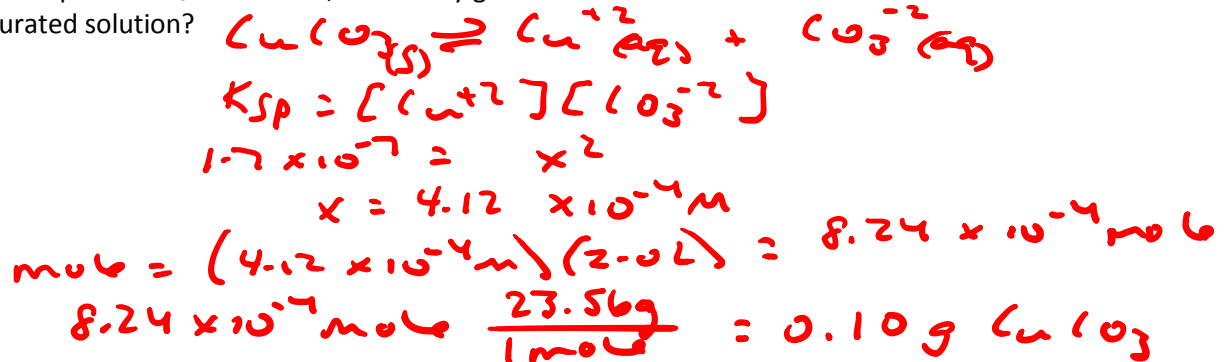 urated solution?
CuCO₃(s) ⇌ Cu⁺²(aq) + CO₃⁻²(aq)
Ksp = [Cu⁺²][CO₃⁻²]
1.7 × 10⁻⁷ = x²
x = 4.12 × 10⁻⁴ M
mole = (4.12 × 10⁻⁴ M)(2.0L) = 8.24 × 10⁻⁴ mole
8.24 × 10⁻⁴ mole 23.56g / 1 mole = 0.10 g CuCO₃